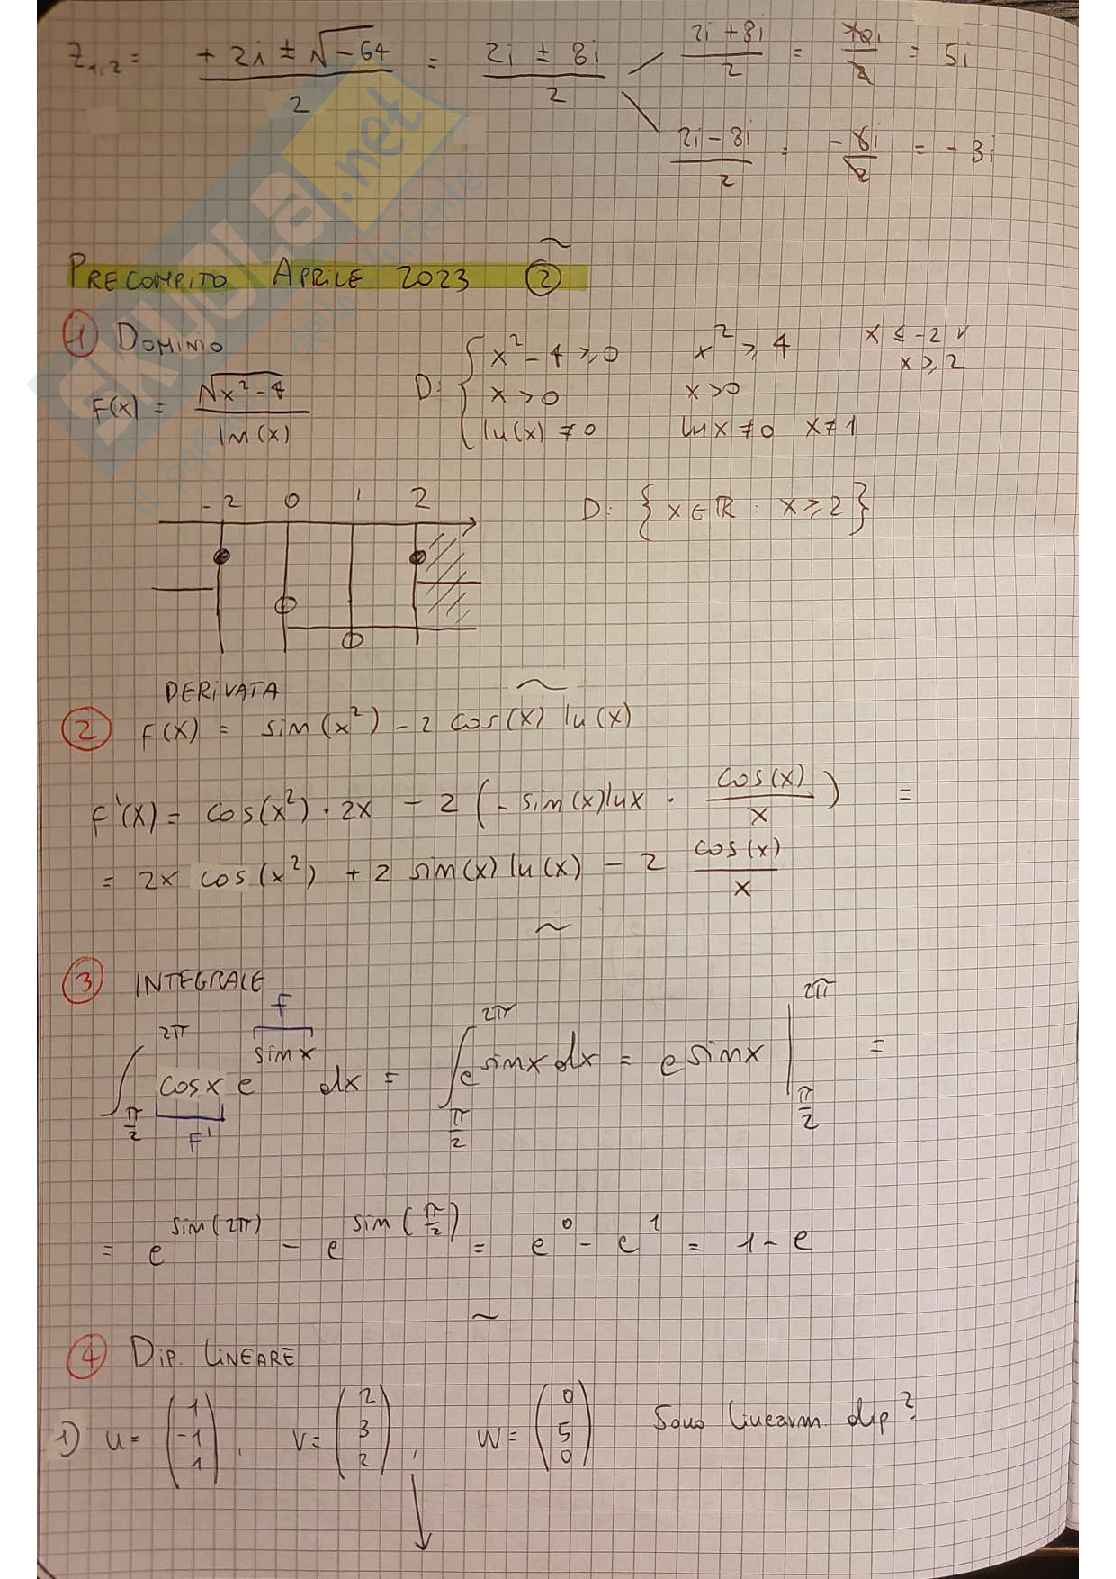 Z₁,₂ = (+2i ± √-64)/2 = (2i ± 8i)/2
(2i + 8i)/2 = 10i/2 = 5i
(2i - 8i)/2 = -6i/2 = -3i
~
PRECOMPITO APRILE 2023 ②
① DOMINIO
F(x) = √(x²-4)/ln(x)
D: { x²-4 ≥ 0 x² ≥ 4 x ≤ -2 ∨ x ≥ 2
x > 0 x > 0
ln(x) ≠ 0 ln x ≠ 0 x ≠ 1
-2 0 1 2
D: {x ∈ ℝ : x ≥ 2}
~
DERIVATA
② F(x) = sin(x²) - 2 cos(x) ln(x)
F'(x) = cos(x²) · 2x - 2 (- sin(x) ln x · cos(x)/x) =
= 2x cos(x²) + 2 sin(x) ln(x) - 2 cos(x)/x
~
③ INTEGRALE
F
∫_{π/2}^{2π} cosx e^{sinx} dx = ∫_{π/2}^{2π} e^{sinx} dx = e^{sinx} |_{π/2}^{2π} =
F'
= e^{sin(2π)} - e^{sin(π/2)} = e⁰ - e¹ = 1 - e
~
④ DIP. LINEARE
1) u = (1 -1 1), v = (2 3 2), w = (0 5 0) Sono linearm. dip?